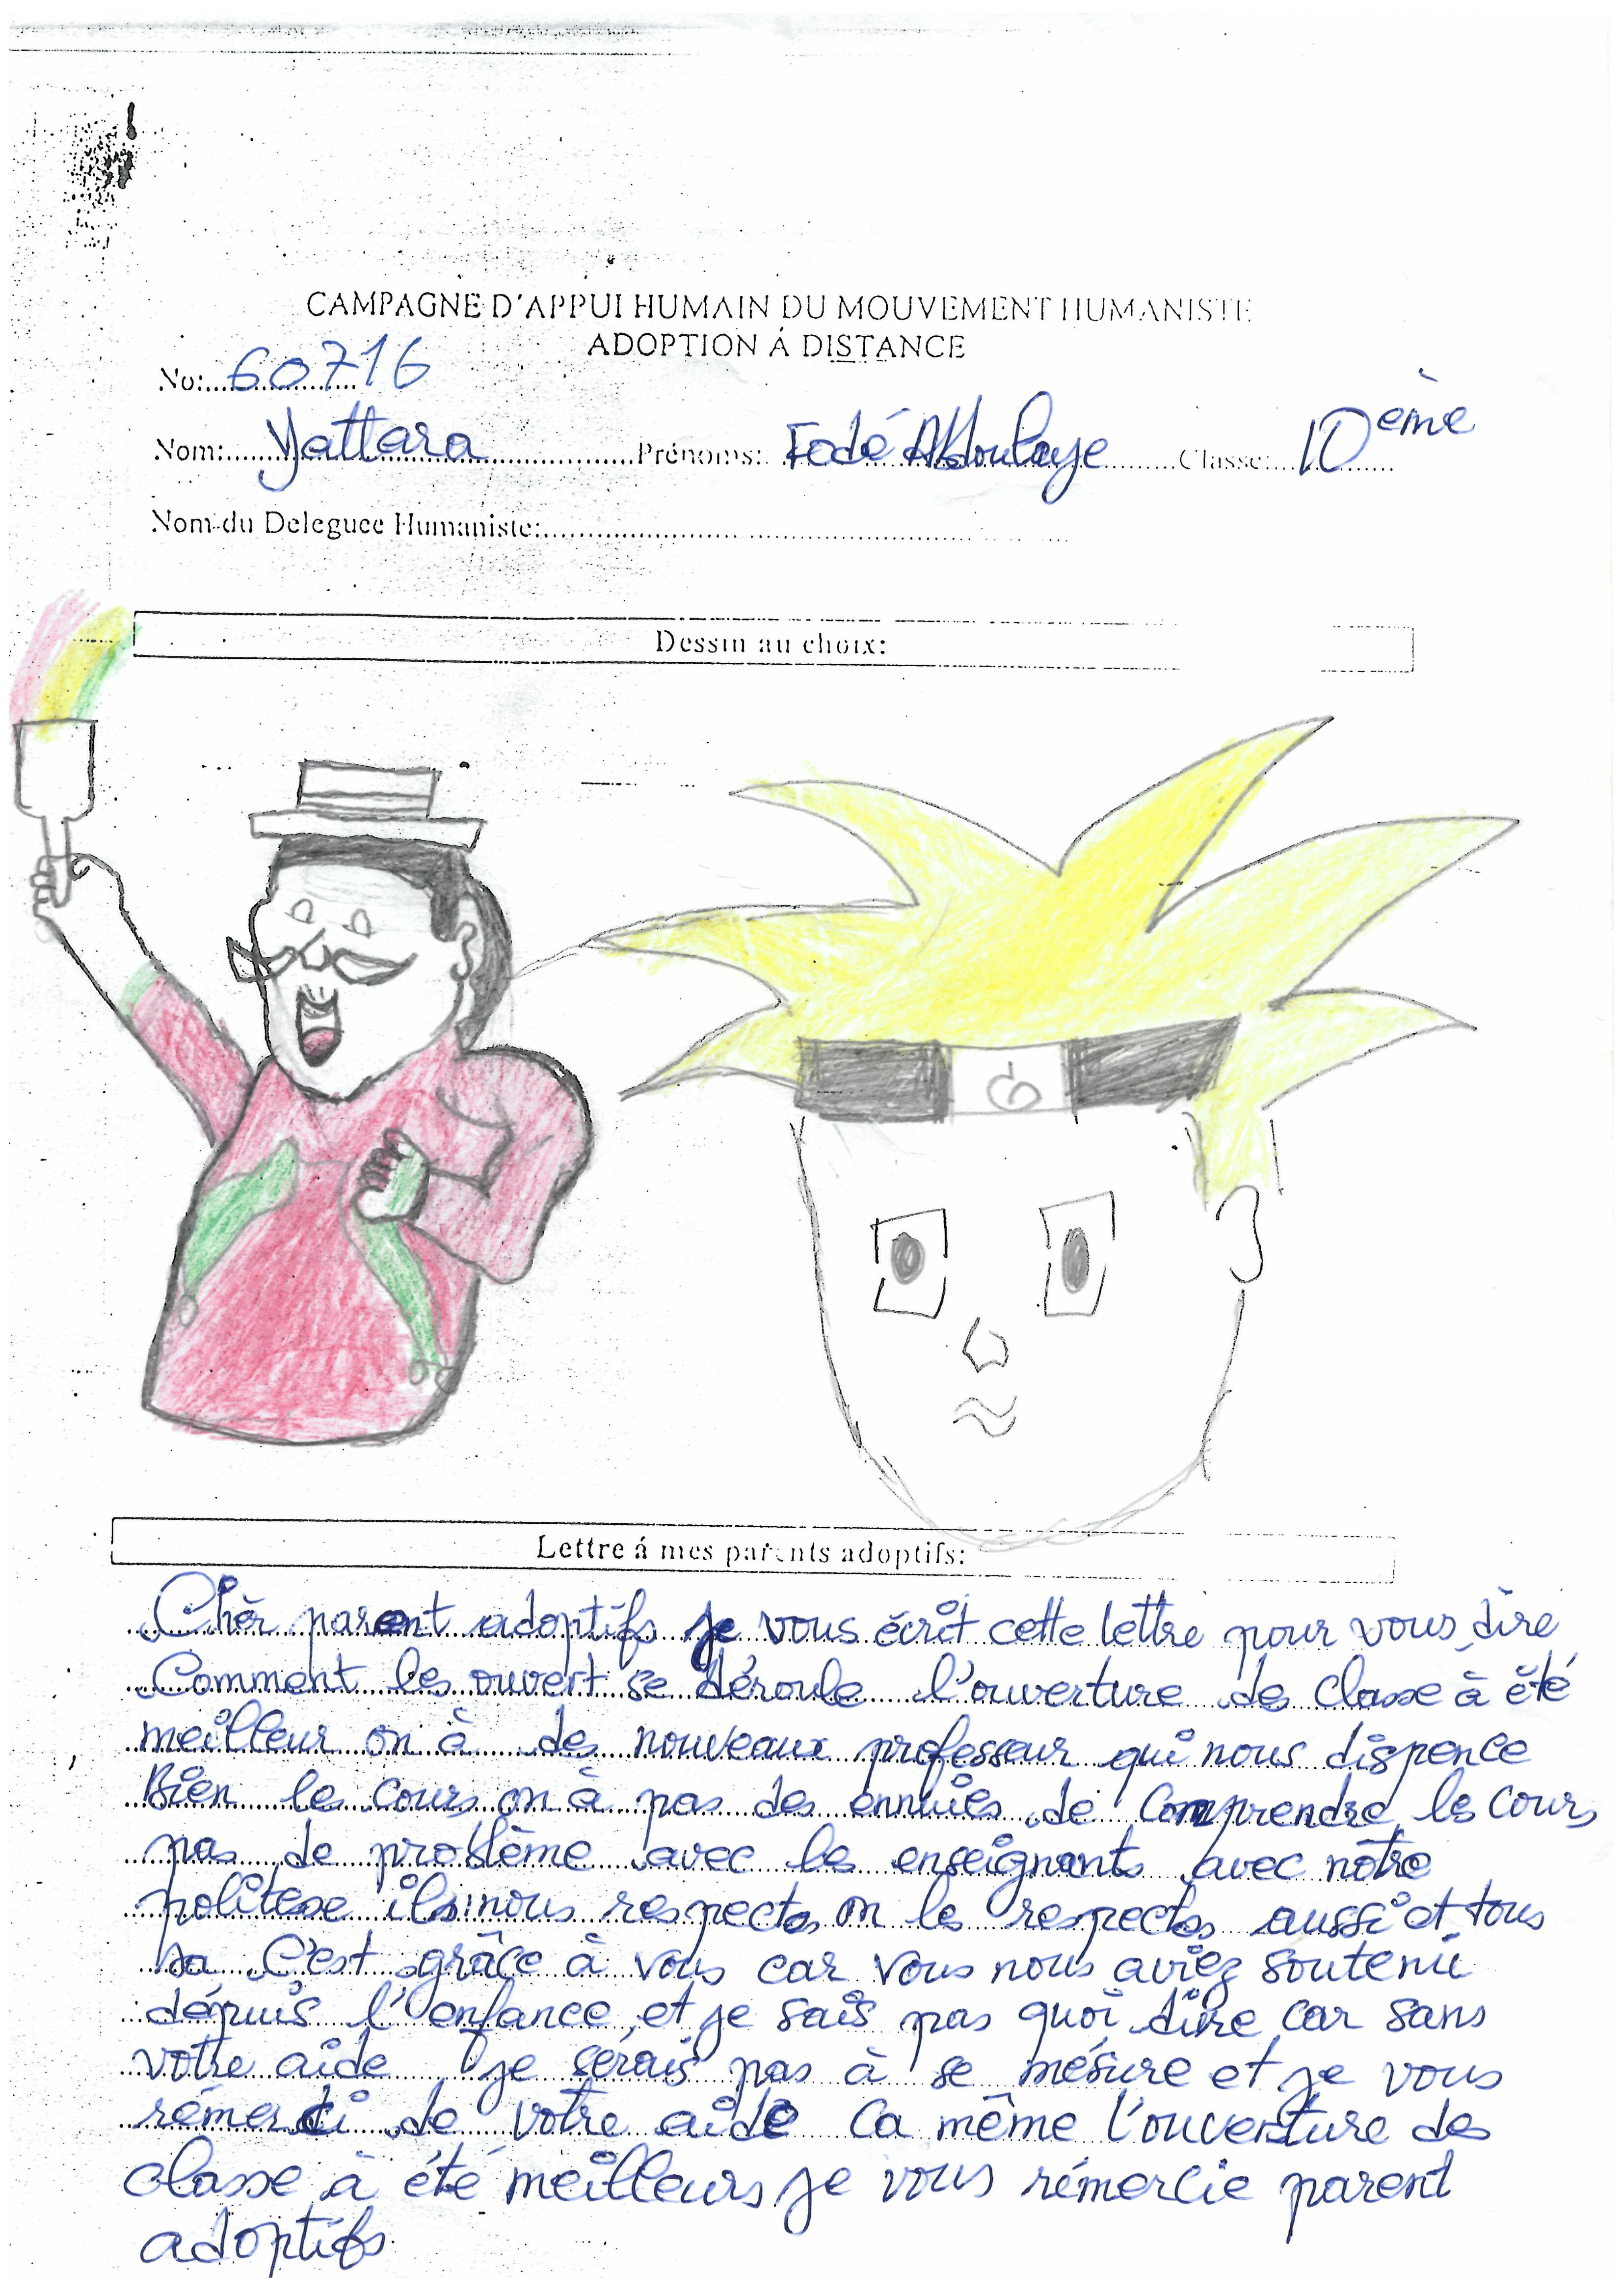 CAMPAGNE D'APPUI HUMAIN DU MOUVEMENT HUMANISTE
ADOPTION Á DISTANCE
No: 60716
Nom: Yattara Prénoms: Fodé Abdoulaye Classe: 10ème
Nom du Deleguee Humaniste:
Dessin au choix:
Lettre á mes parents adoptifs:
Chèr parent adoptifs je vous écrit cette lettre pour vous dire
Comment les ouvert se déroule l'ouverture des classe à été
meilleur on à des nouveaux professeur qui nous dispence
Bien les cours on à pas des ennuies de Comprendre les cours
pas de problème avec les enseignants avec nôtre
politese ils nous respectes on les respectes aussi et tous
sa C'est grâce à vous car vous nous aviez soutenu
dépuis l'enfance, et je sais pas quoi dire car sans
votre aide je serais pas à se mésure et je vous
rémerci de votre aide Ca même l'ouverture des
classe à été meilleurs je vous rémercie parent
adoptifs